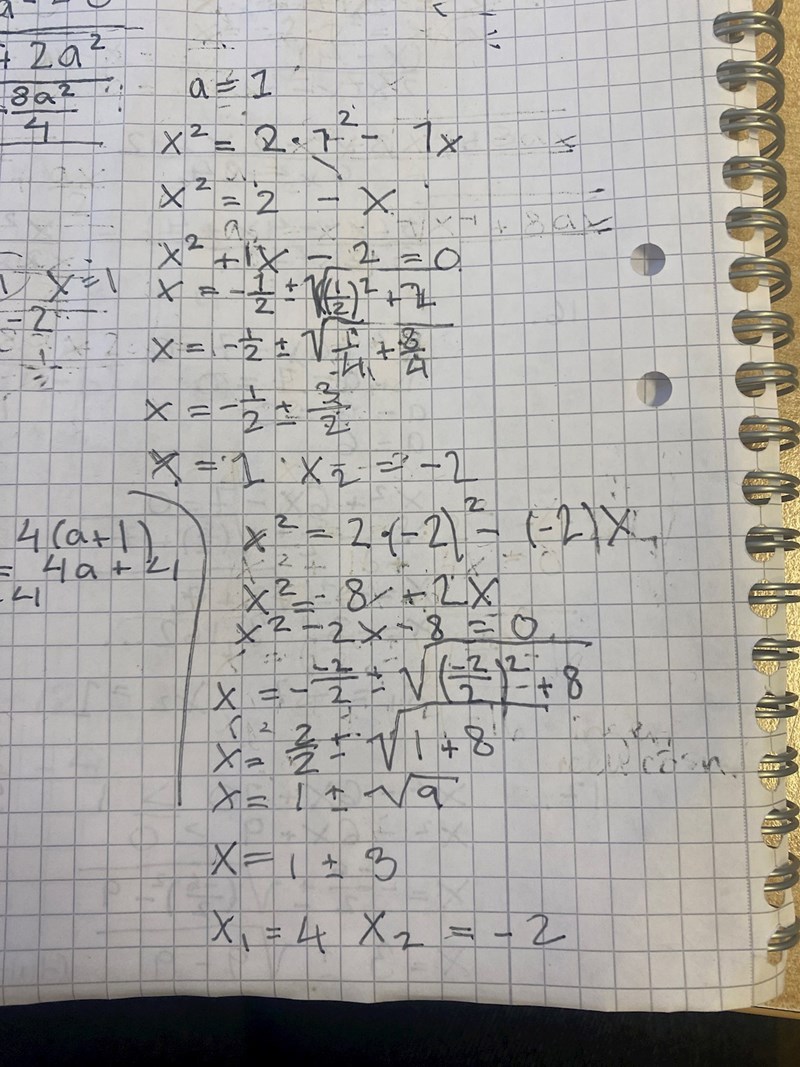 + 2a²
8a²
4
a = 1
x² = 2 · 1² - 1x
x² = 2 - x
x² + 1x - 2 = 0
x = -1/2 ± √(1/2)² + 2
x = -1/2 ± √1/4 + 8/4
x = -1/2 ± 3/2
x = 1 x₂ = -2
x = 1
-2
4(a+1)
= 4a + 4
-4
x² = 2·(-2)² - (-2)x
x² = 8 + 2x
x² - 2x - 8 = 0
x = - -2/2 ± √(-2/2)² + 8
x = 2/2 ± √1 + 8
x = 1 ± √9
x = 1 ± 3
x₁ = 4 x₂ = -2